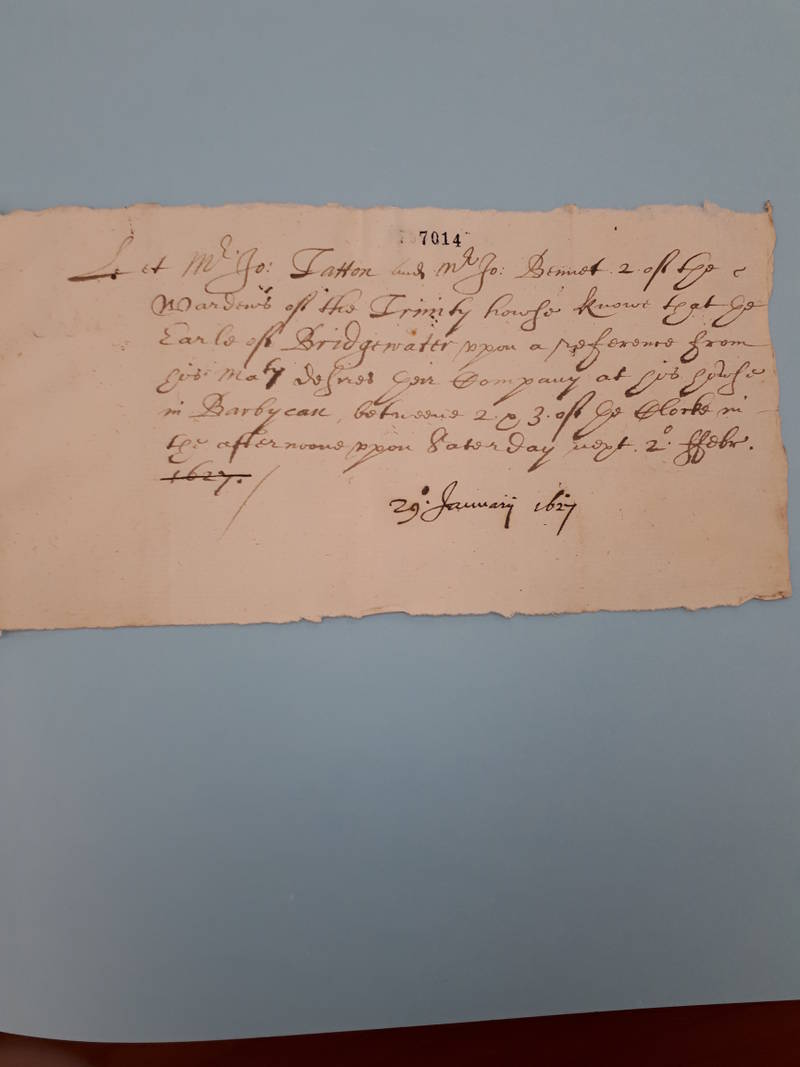 7014
Let Mr. Jo: Tatton and Mr Jo: Bennet .2. of the
Wardens of the Trinity howse knowe that the
Earle of Bridgewater vppon a reference from
his Maty desires their Company at his howse
in Barbycan, betweene 2. & 3. of the Clocke in
the afternoone vppon Saterday next. 2o. ffebr.
1627.
29o. January 1627